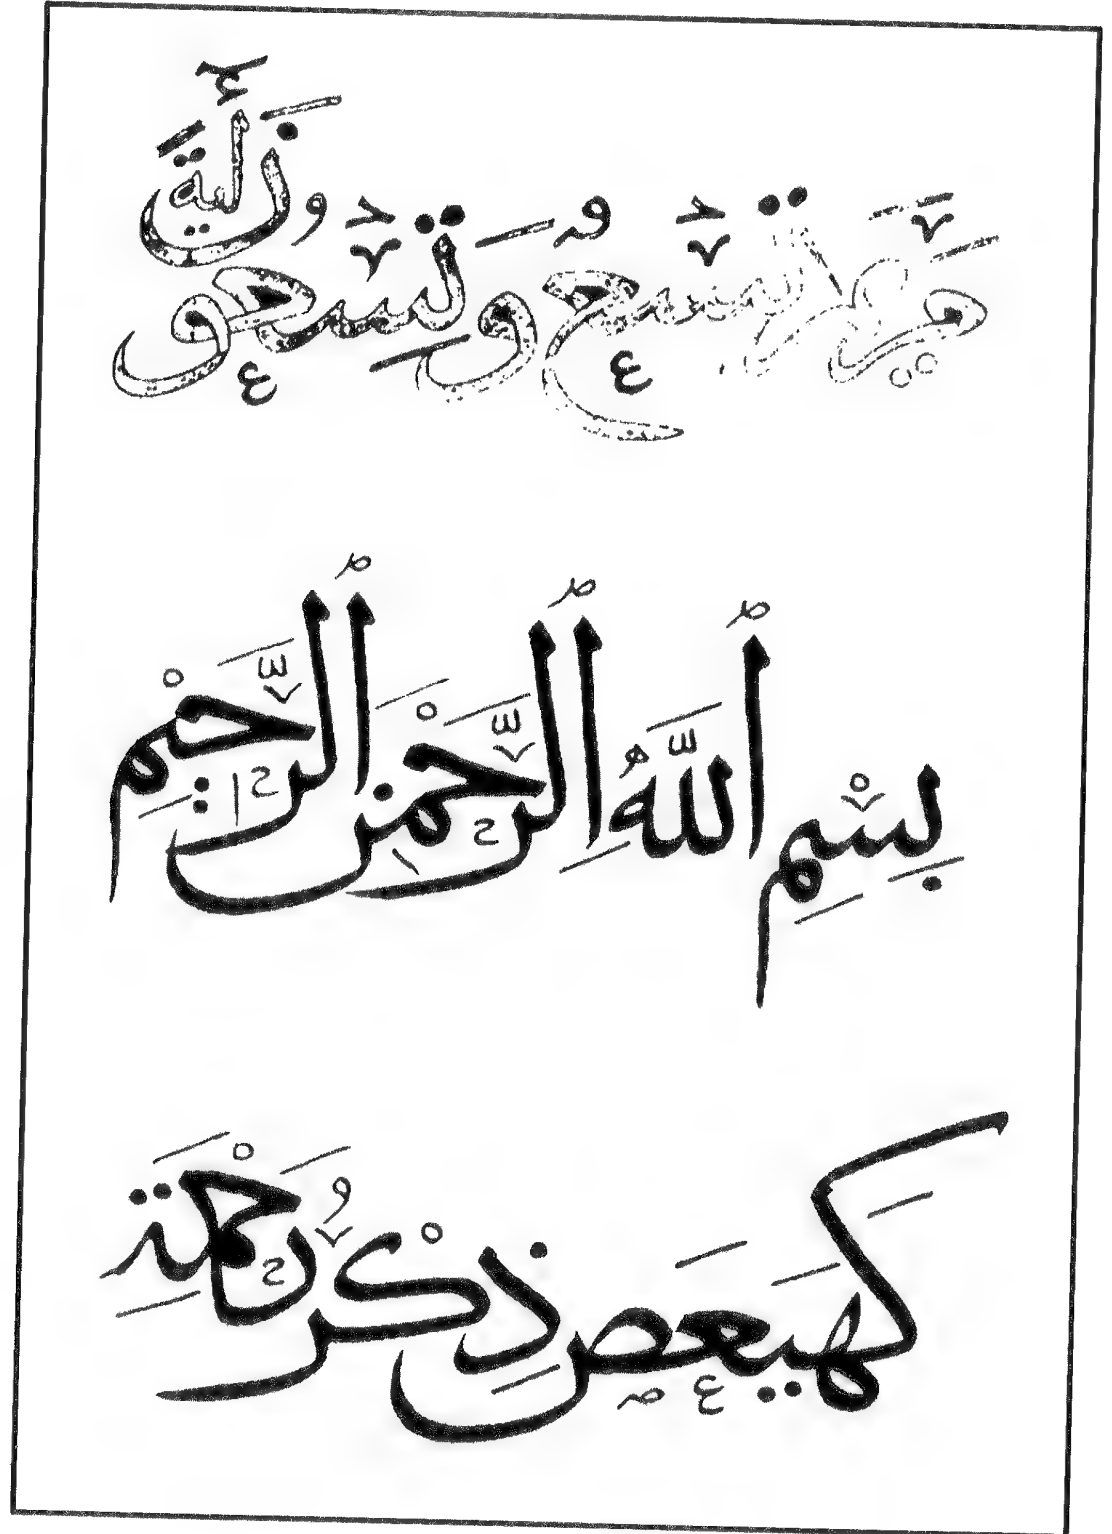 مريم تسع وتسعون أية
بِسْمِ ٱللَّهِ ٱلرَّحْمَنِ ٱلرَّحِيْمِ
كَهَيَعص ذِكْرُ رَحْمَةِ